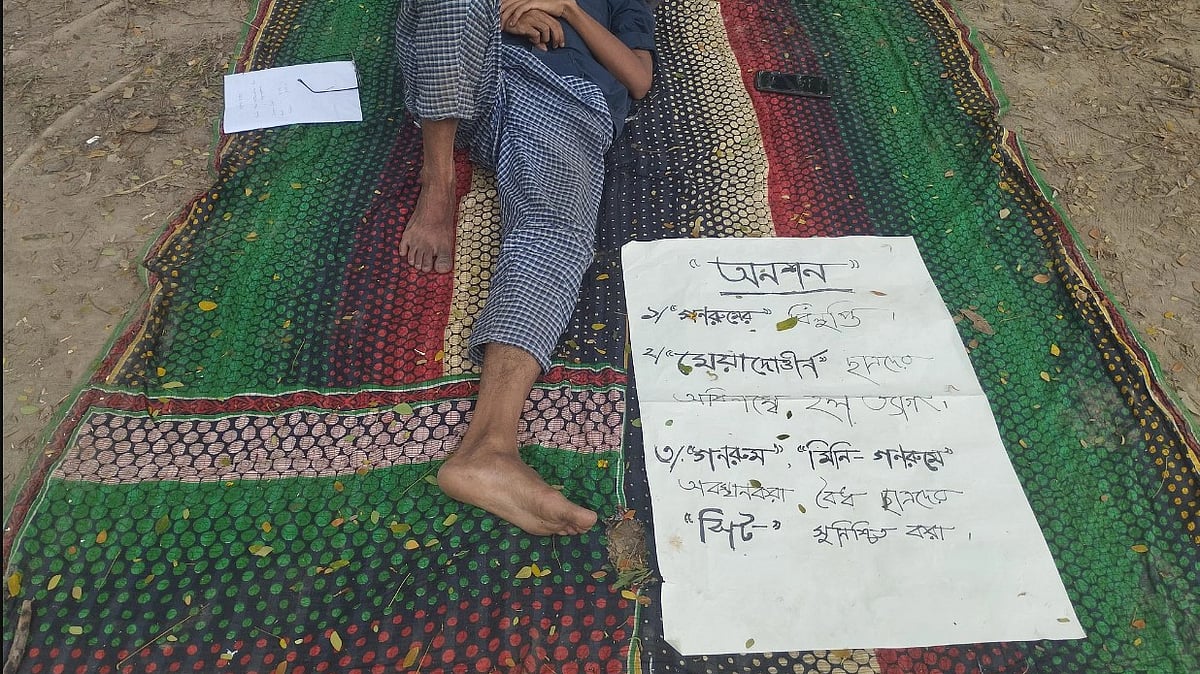 “অনশন”
১/ “গণরুমের” বিলুপ্তি।
২/ “মেয়াদোত্তীর্ণ” ছাত্রদের
অবিলম্বে হল ত্যাগ।
৩/ “গনরুম”, “মিনি-গনরুমে”
অবস্থানকরা বৈধ ছাত্রদের
“সিট” সুনিশ্চিত করা।